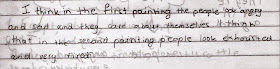 I think in the first painting the people look angry
and sad and they care about themselves I think
that in the second painting people look exhausted
and very tired